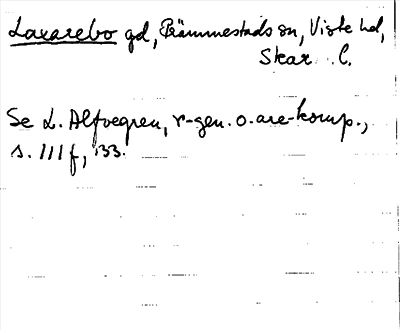 Laxarebo gd, Främmestads sn, Viste hd,
Skar. l.
Se L. Alfvegren, r-gen. o. are-komp.,
s. 111 f, 133.